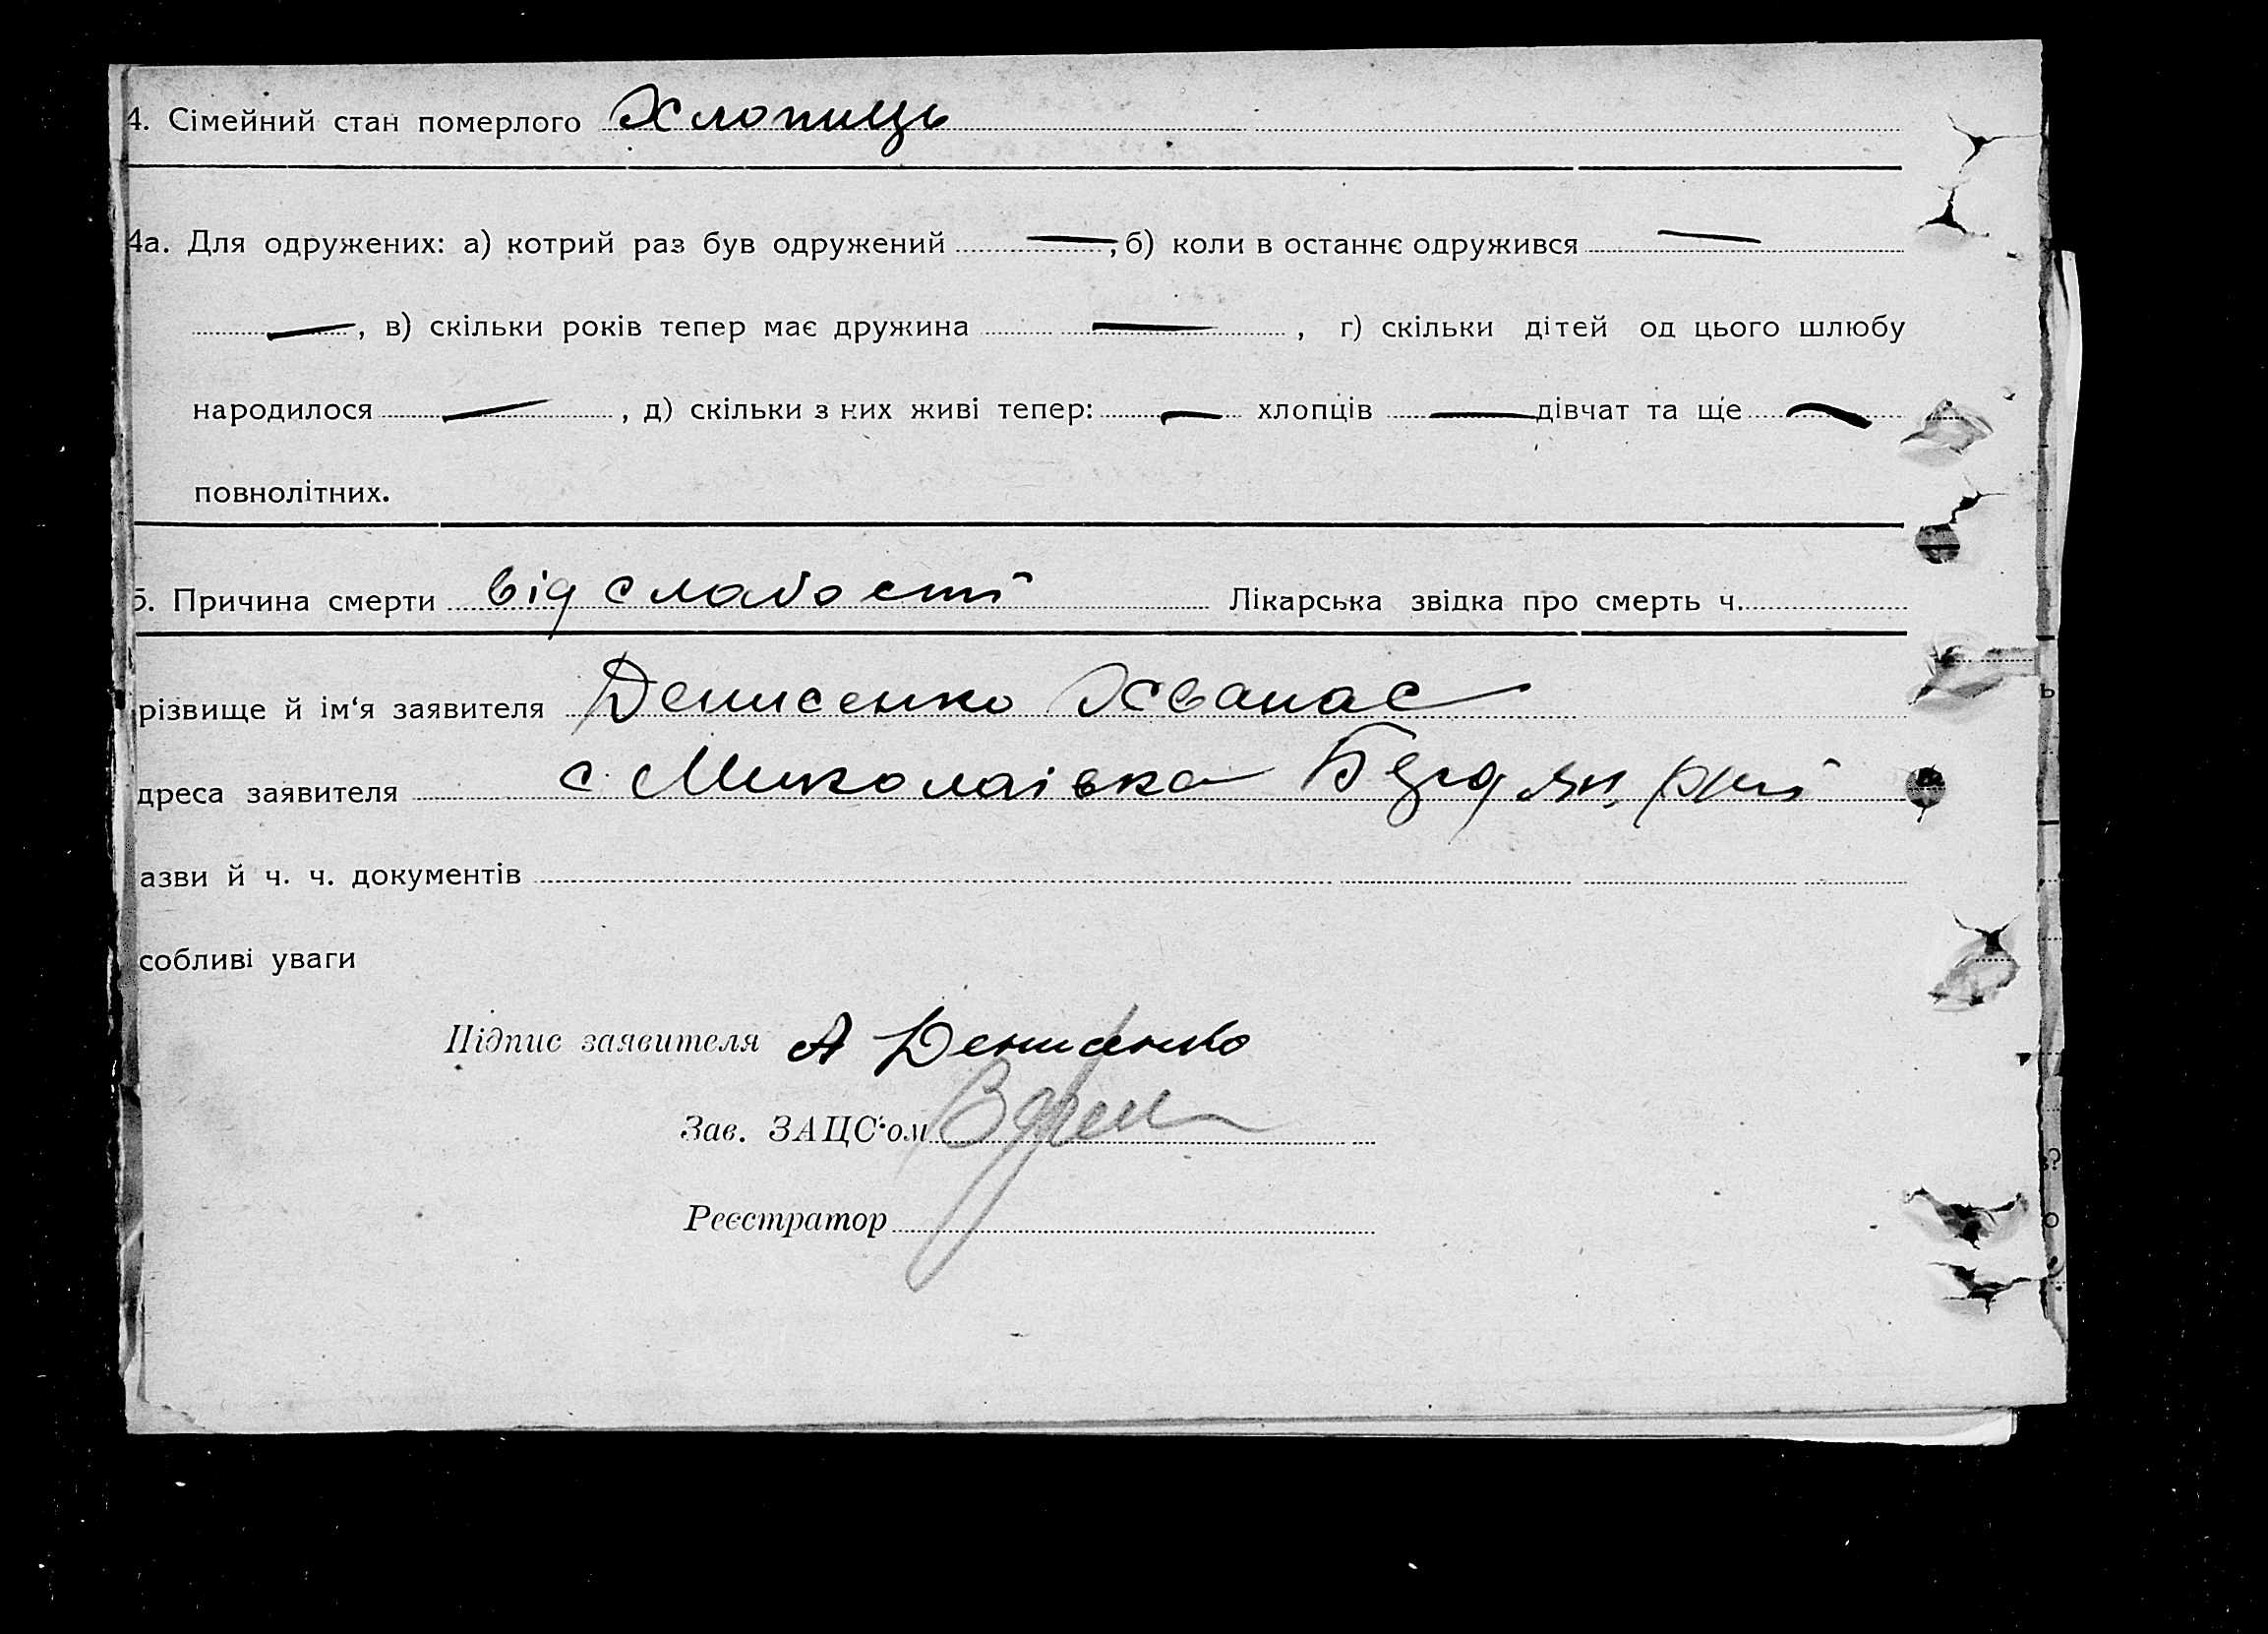 4. Сімейний стан померлого Хлопиць
4а. Для одружених: а) котрий раз був одружений —, б) коли в останнє одружився —
—, в) скільки років тепер має дружина —, г) скільки дітей од цього шлюбу
народилося —, д) скільки з них живі тепер: — хлопців — дівчат та ще —
повнолітних.
5. Причина смерти від слабости Лікарська звідка про смерть ч.
різвище й ім‘я заявителя Денисенко Хванас
дреса заявителя с. Миколаівка
азви й ч. ч. документів
собливі уваги
Підпис заявителя А Денисенко
Зав. ЗАЦС‘ом
Реєстратор